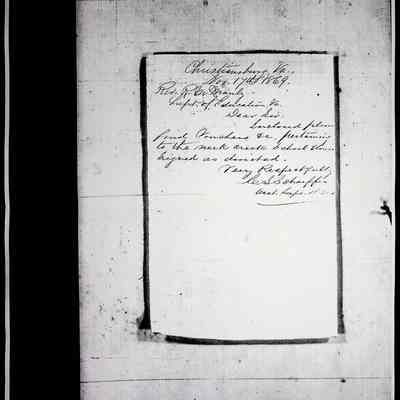 Christiansburg, Va.
Nov. 17th 1869.
Rev. R. M. Manly
Supt. of Education Va.
Dear Sir.
Enclosed please
find Vouchers &c. pertaining
to the creek School House
signed as directed.
Very Respectfully
C. S. Schaeffer
Asst. Supt.